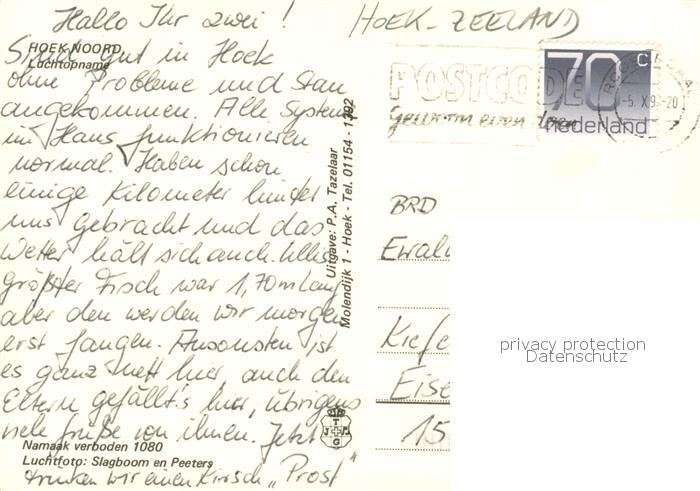 Hallo Ihr zwei!
HOEK-ZEELAND
HOEK NOORD
Luchtopname
Sind gut in Hoek
ohne Probleme und Stau
angekommen. Alle Systeme
im Haus funktionieren
normal. Haben schon
einige Kilometer hinter
uns gebracht und das
Wetter hält sich auch. Unser
größter Fisch war 1,70m lang
aber den werden wir morgen
erst fangen. Ansonsten ist
es ganz nett hier, auch den
Eltern gefällt's hier, übrigens
viele Grüße von ihnen. Jetzt
trinken wir einen Kirsch "Prost"
Namaak verboden 1080
Luchtfoto: Slagboom en Peeters
Uitgave: P.A. Tazelaar
Molendijk 1 - Hoek - Tel. 01154 - 1392
POSTCODE
Gewoon even doen
70 c
nederland
BRD
Ewal
Kiefe
Eise
15
privacy protection
Datenschutz